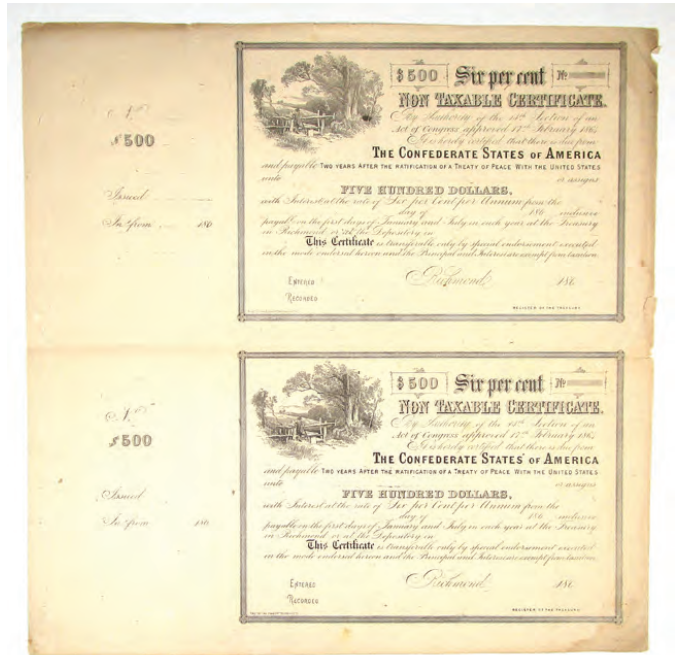 No
$500
Issued
Int. from 186
$500 Six per cent No
NON TAXABLE CERTIFICATE.
By Authority of the 14th Section of an
Act of Congress approved 17th February 186
It is hereby certified that there is due from
THE CONFEDERATE STATES OF AMERICA
and payable TWO YEARS AFTER THE RATIFICATION OF A TREATY OF PEACE WITH THE UNITED STATES
unto or assigns
FIVE HUNDRED DOLLARS,
with Interest at the rate of Six per Cent per Annum from the
day of 186 inclusive
payable on the first days of January and July in each year at the Treasury
in Richmond or at the Depository in
This Certificate is transferable only by special endorsement executed
in the mode endorsed hereon and the Principal and Interest are exempt from taxation.
ENTERED
RECORDED
Richmond, 186
REGISTER OF THE TREASURY
No
$500
Issued
Int. from 186
$500 Six per cent No
NON TAXABLE CERTIFICATE.
By Authority of the 14th Section of an
Act of Congress approved 17th February 186
It is hereby certified that there is due from
THE CONFEDERATE STATES OF AMERICA
and payable TWO YEARS AFTER THE RATIFICATION OF A TREATY OF PEACE WITH THE UNITED STATES
unto or assigns
FIVE HUNDRED DOLLARS,
with Interest at the rate of Six per Cent per Annum from the
day of 186 inclusive
payable on the first days of January and July in each year at the Treasury
in Richmond or at the Depository in
This Certificate is transferable only by special endorsement executed
in the mode endorsed hereon and the Principal and Interest are exempt from taxation.
ENTERED
RECORDED
Richmond, 186
REGISTER OF THE TREASURY